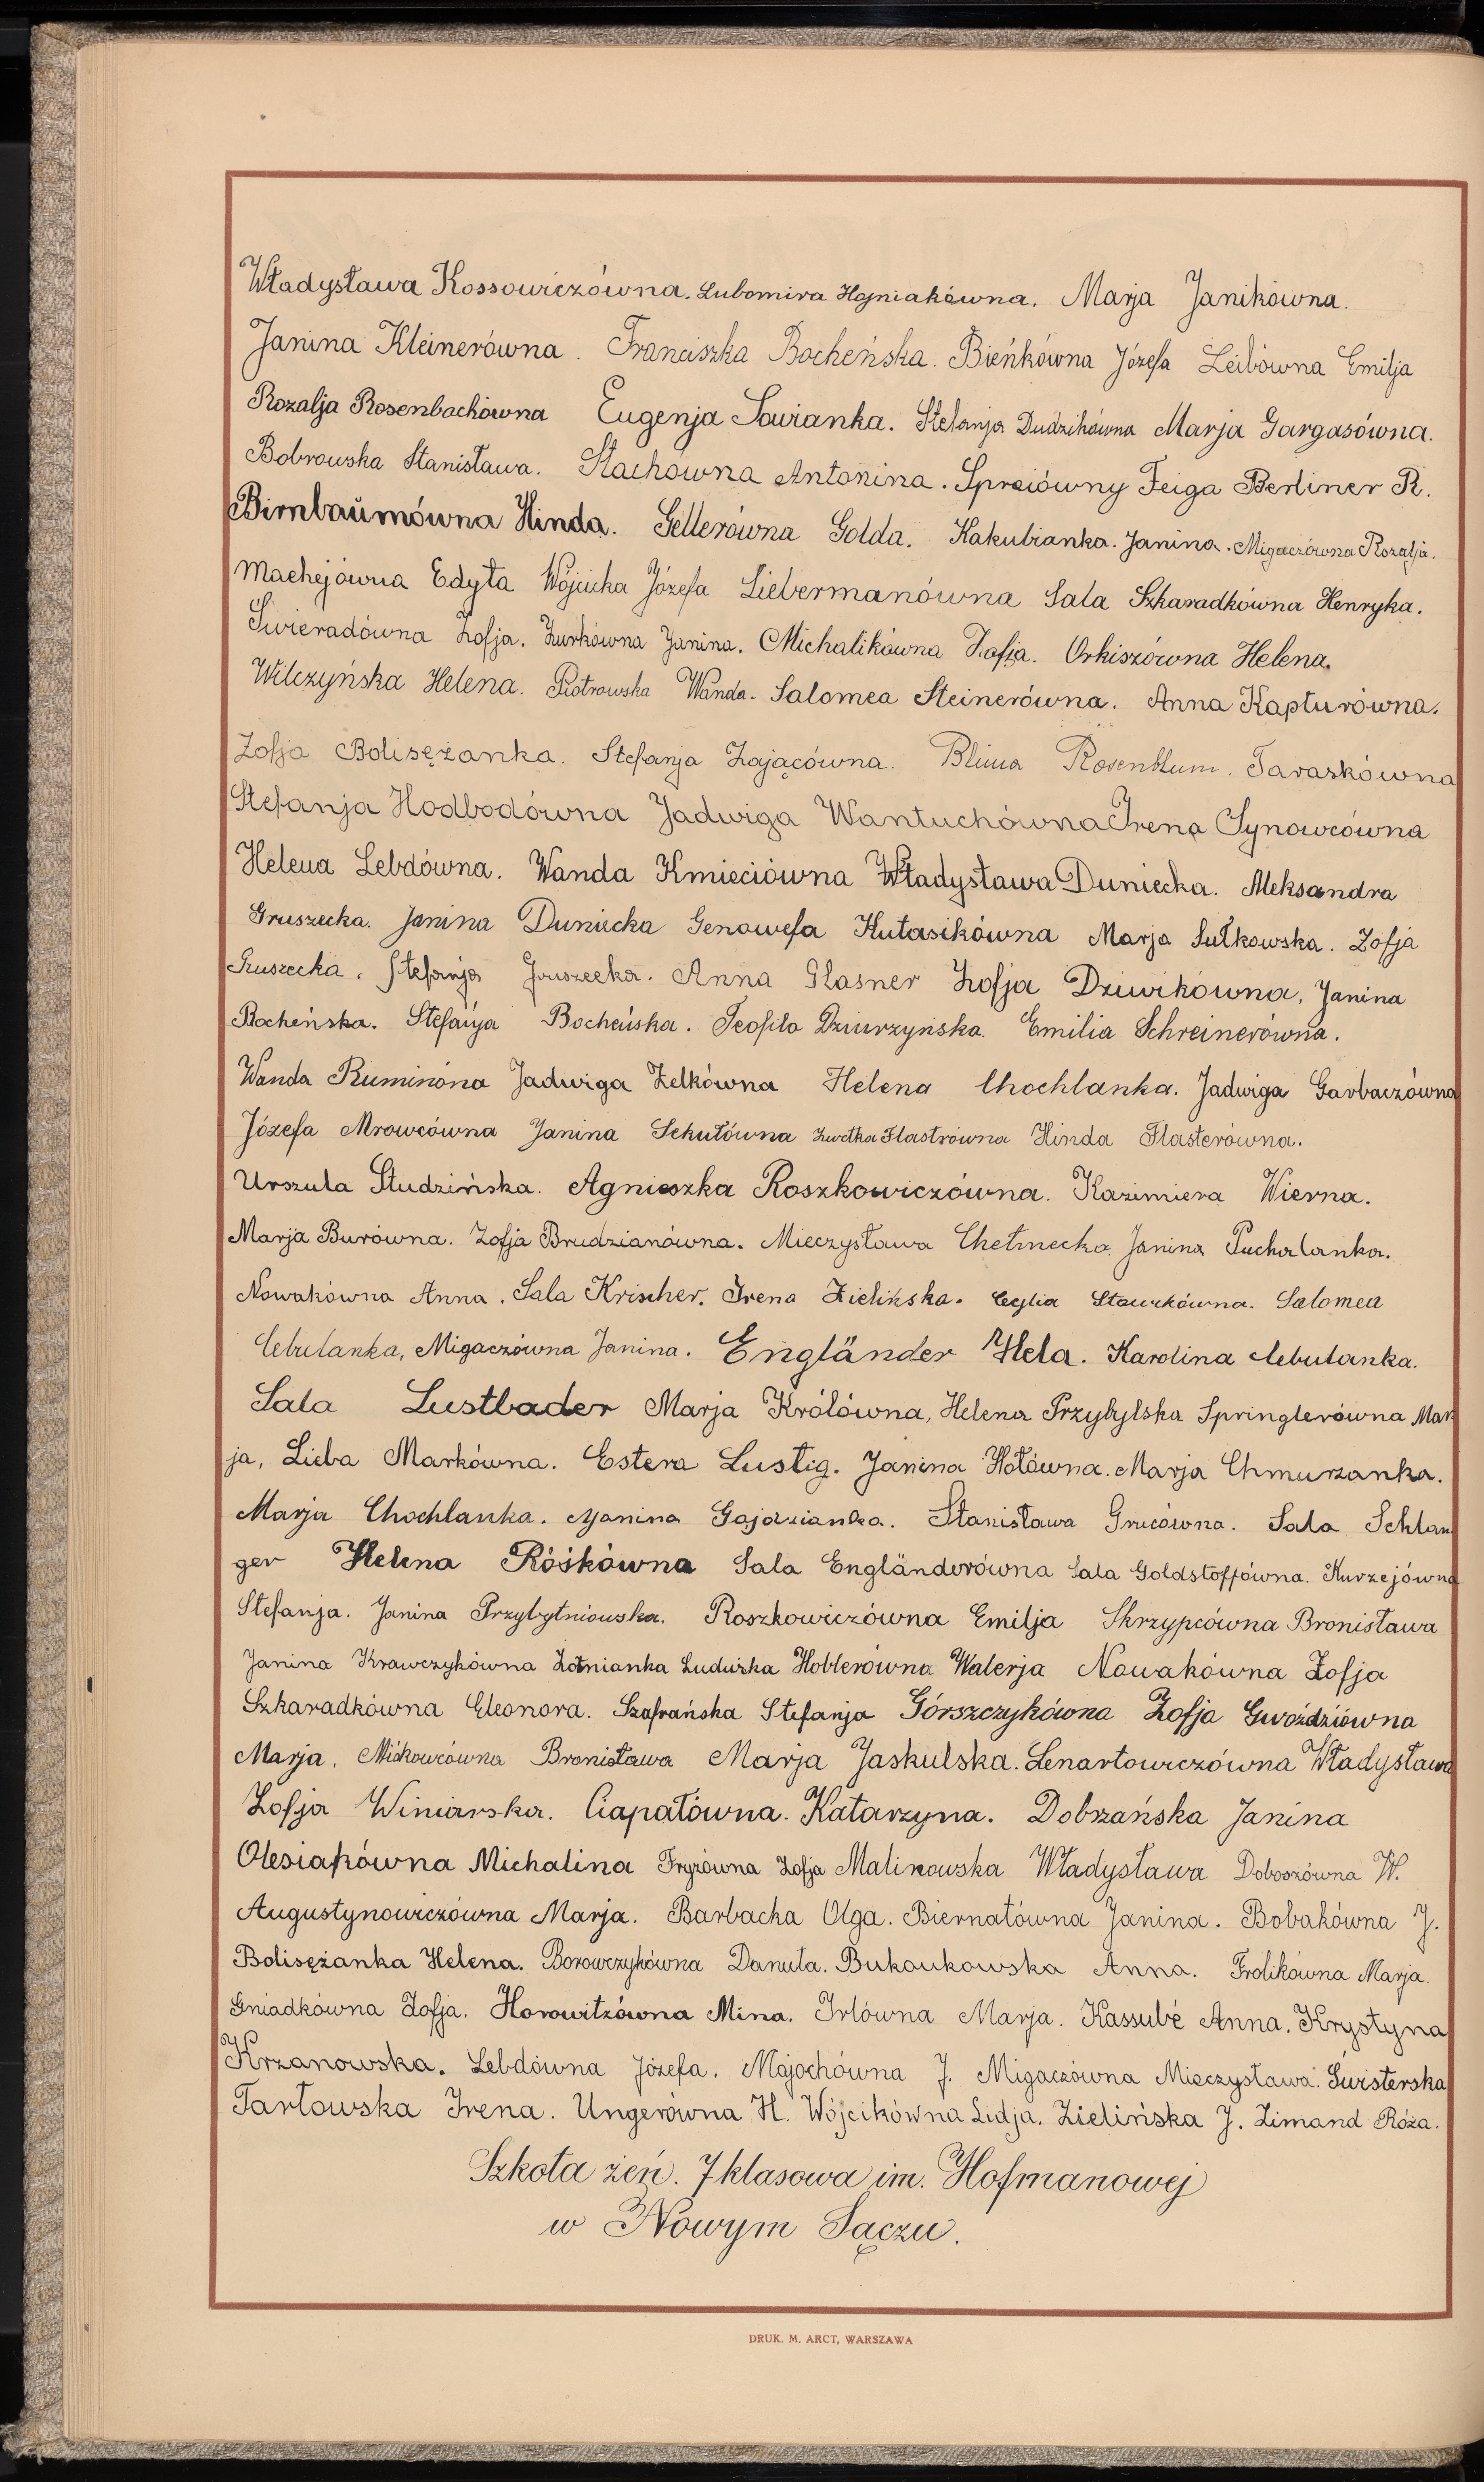 Władysława Kossowiczówna. Lubomira Hojniakówna. Marja Janikówna.
Janina Kleinerówna. Franciszka Bocheńska. Bieńkówna Józefa Leibówna Emilja
Rozalja Rosenbachówna Eugenja Sowianka. Stefanja Dudzikówna Marja Gargasówna.
Bobrowska Stanisława. Stachówna Antonina. Spreiówny Feiga Berliner R.
Birnbaumówna Hinda. Gellerówna Golda. Kakubianka. Janina. Migaczówna Rozalja.
Machejówna Edyta Wójcicka Józefa Liebermanówna Sala Szkaradkówna Henryka.
Świeradówna Zofja. Żurkówna Janina. Michalikówna Zofja. Orkiszówna Helena.
Wilczyńska Helena. Piotrowska Wanda. Salomea Steinerówna. Anna Kapturówna.
Zofja Bolisężanka. Stefanja Zającówna. Blima Rosenblum. Taraskówna
Stefanja Hodbodówna Jadwiga Wantuchówna Irena Synowcówna
Helena Lebdówna. Wanda Kmieciówna Władysława Duniecka. Aleksandra
Gruszecka. Janina Duniecka Genowefa Kutasikówna Marja Sułkowska. Zofja
Gruszecka. Stefanja Gruszecka. Anna Glasner Zofja Dziwikówna, Janina
Bocheńska. Stefanja Bocheńska. Teofila Dziurzyńska. Emilia Schreinerówna.
Wanda Ruminóna Jadwiga Zelkówna Helena Chochlanka. Jadwiga Garbaczówna
Józefa Mrowcówna Janina Sekułówna Zwetka Flastrówna Hinda Flasterówna.
Urszula Studzińska. Agnieszka Roszkowiczówna. Kazimiera Wierna.
Marja Burówna. Zofja Brudzianówna. Mieczysława Chełmecka. Janina Puchalanka.
Nowakówna Anna. Sala Krischer. Irena Zielińska. Ceglia Stawikówna. Salomea
Cebulanka, Migaczówna Janina. Engländer Hela. Karolina Cebulanka.
Sala Lustbader Marja Królówna, Helena Przybylska Springlerówna Mar
ja, Lieba Markówna. Estera Lustig. Janina Hołówna. Marja Chmurzanka.
Marja Chochlanka. Janina Gajdzianka. Stanisława Grucówna. Sala Schlan
ger Helena Róśkówna Sala Engländerówna Sala Goldstoffówna. Kurzejówna
Stefanja. Janina Przybytniowska. Roszkowiczówna Emilja Skrzypcówna Bronisława
Janina Krawczykówna Żołnianka Ludwika Hoblerówna Walerja Nowakówna Zofja
Szkaradkówna Eleonora. Szafrańska Stefanja Górszczykówna Zofja Gwoździówna
Marja. Miśkowcówna Bronisława Marja Jaskulska. Lenartowiczówna Władysława
Zofja Winiarska. Ciapałówna. Katarzyna. Dobrzańska Janina
Olesiakówna Michalina Fryzówna Zofja Malinowska Władysława Doboszówna W.
Augustynowiczówna Marja. Barbacka Olga. Biernatówna Janina. Bobakówna J.
Bolisężanka Helena. Borowczykówna Danuta. Bukowska Anna. Frolikówna Marja.
Gniadkówna Zofja. Horowitzówna Mina. Irlówna Marja. Kassubé Anna. Krystyna
Krzanowska. Lebdówna Józefa. Majochówna J. Migaczówna Mieczysława. Świsterska
Tarłowska Irena. Ungerówna H. Wójcikówna Lidja. Zielińska J. Zimand Róża.
Szkoła żeń. 7 klasowa im. Hofmanowej
w Nowym Sączu.
DRUK. M. ARCT, WARSZAWA